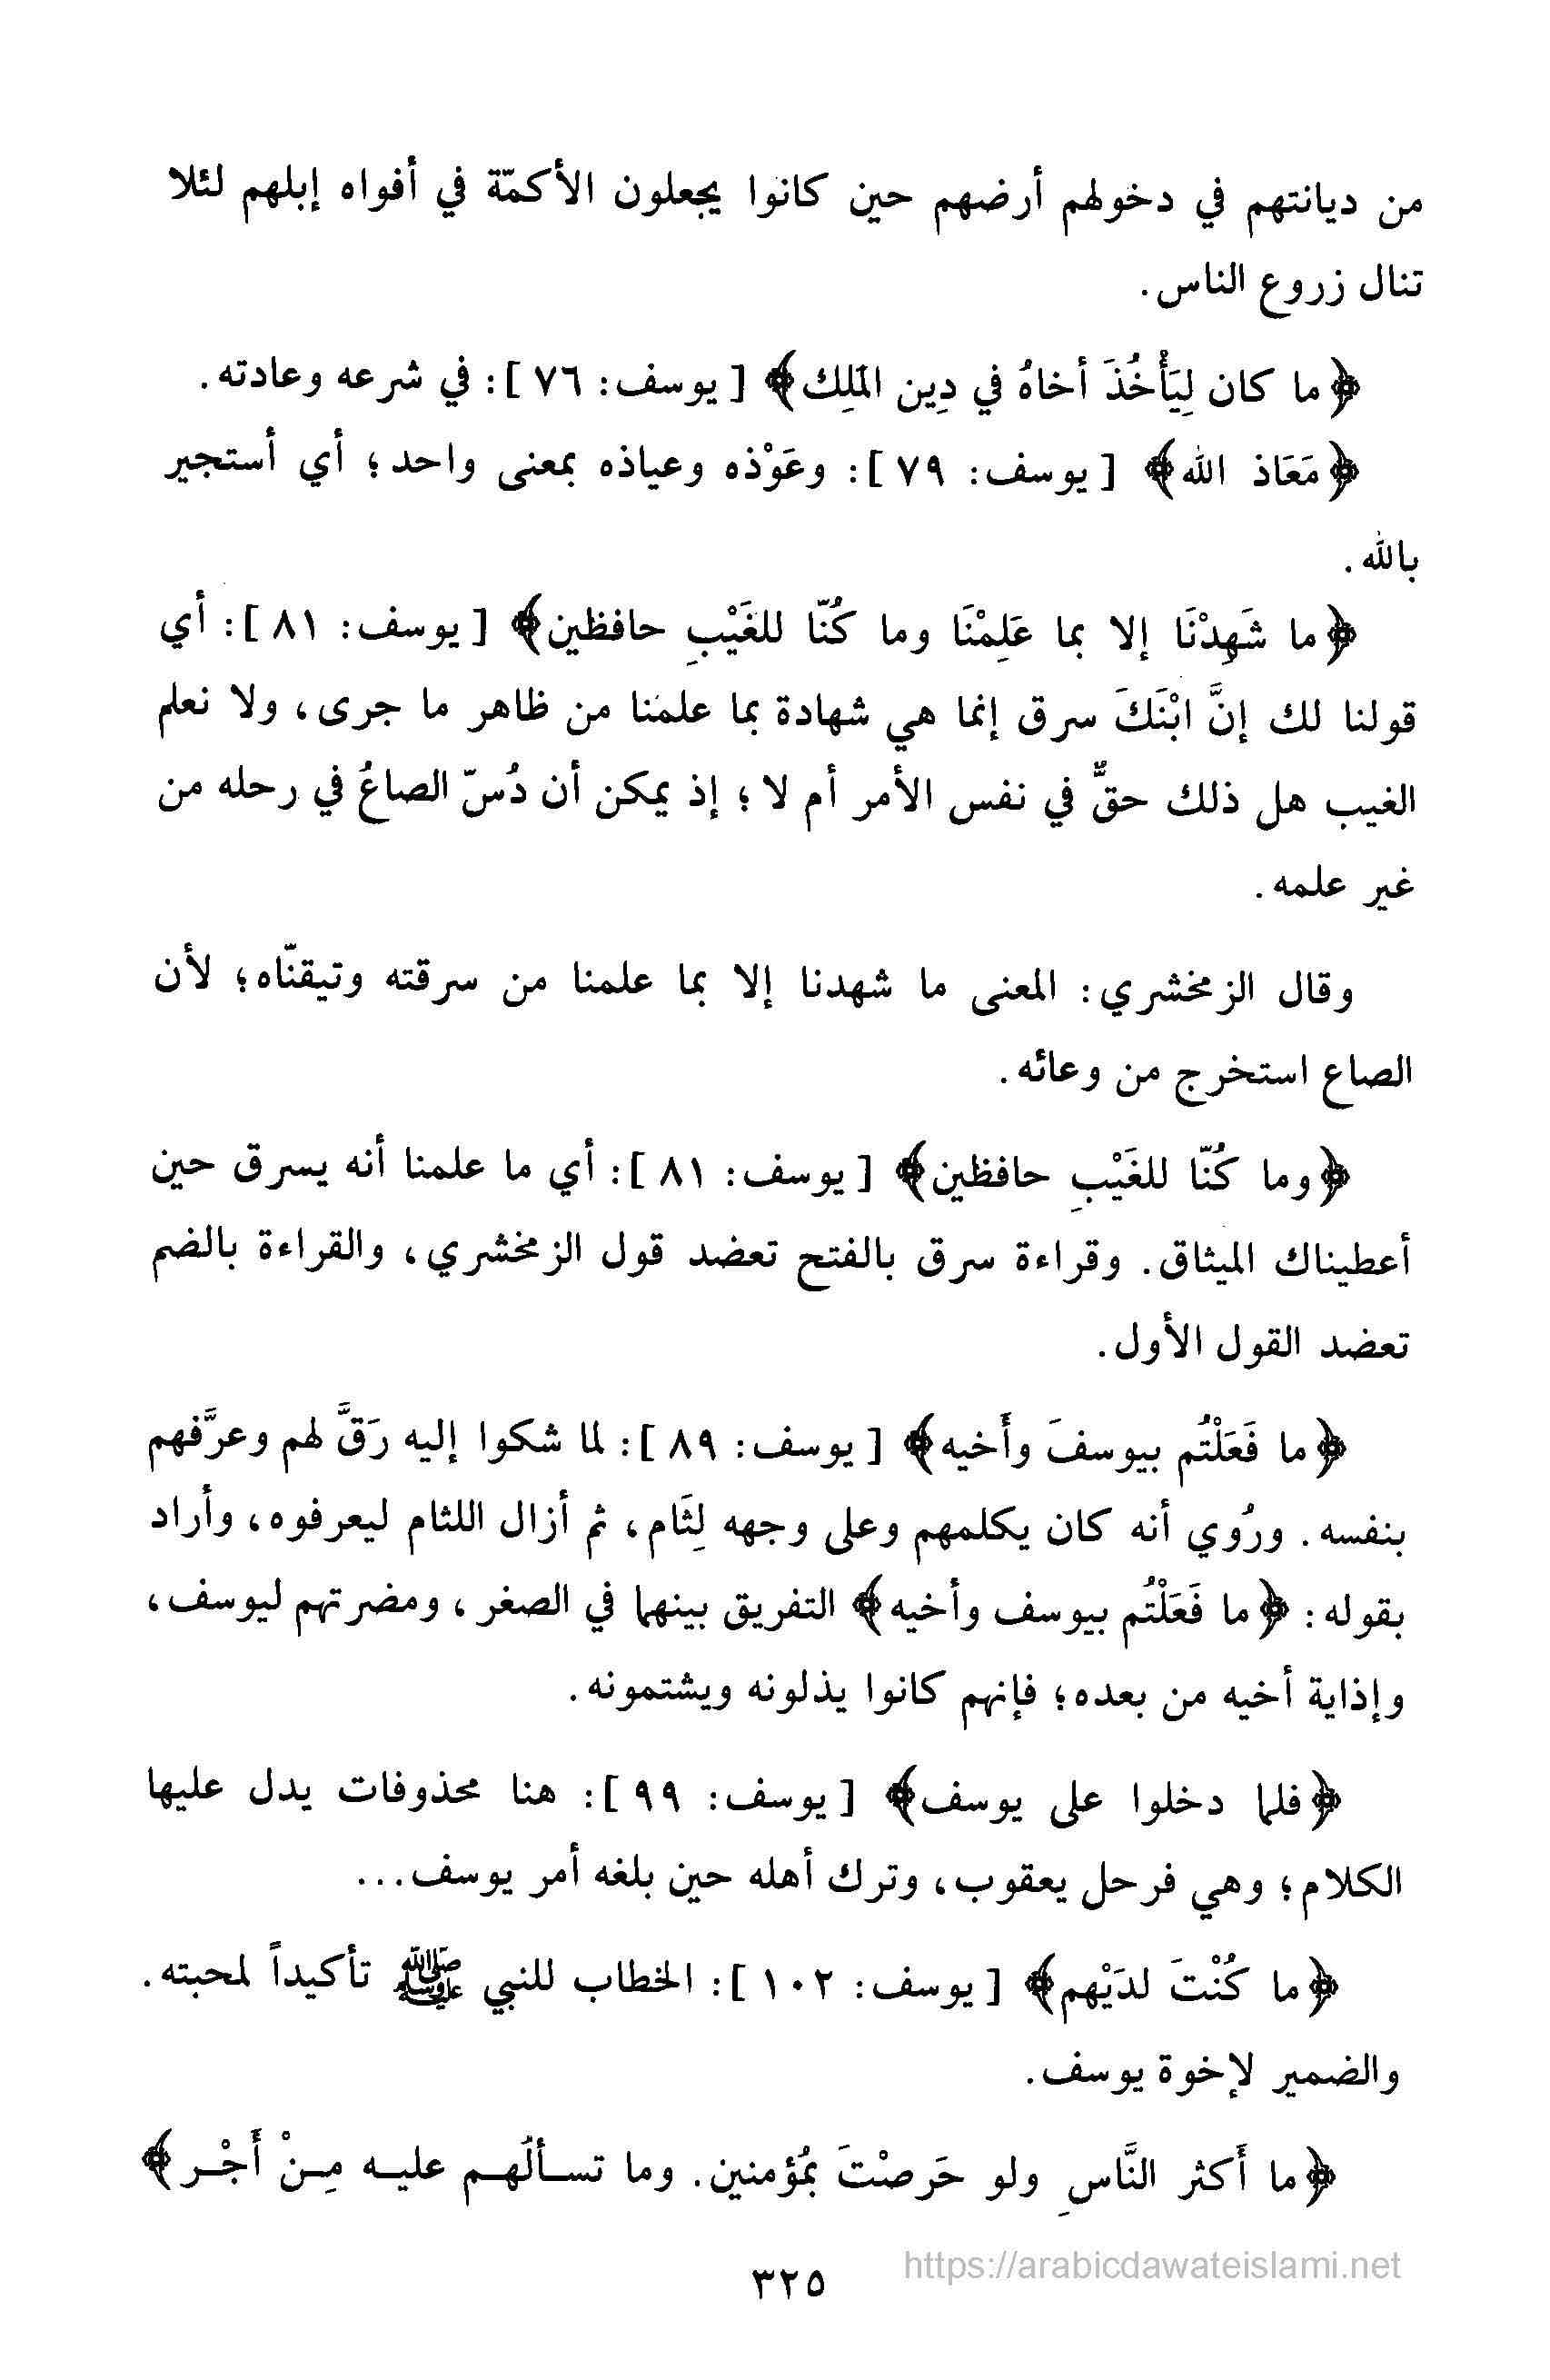 من ديانتهم في دخولهم أرضهم حين كانوا يجعلون الأكمّة في أفواه إبلهم لئلا
تنال زروع الناس.
﴿ما كان لِيَأْخُذَ أخاهُ في دِين المَلِك﴾ [يوسف: ٧٦]: في شرعه وعادته.
﴿مَعَاذ الله﴾ [يوسف: ٧٩]: وعَوْذه وعياذه بمعنى واحد؛ أي أستجير
بالله.
﴿ما شَهِدْنَا إلا بما عَلِمْنَا وما كُنَّا للغَيْبِ حافظين﴾ [يوسف: ٨١]: أي
قولنا لك إنَّ ابْنَكَ سرق إنما هي شهادة بما علمنا من ظاهر ما جرى، ولا نعلم
الغيب هل ذلك حقٌّ في نفس الأمر أم لا؛ إذ يمكن أن دُسّ الصاعُ في رحله من
غير علمه.
وقال الزمخشري: المعنى ما شهدنا إلا بما علمنا من سرقته وتيقنّاه؛ لأن
الصاع استخرج من وعائه.
﴿وما كُنّا للغَيْبِ حافظين﴾ [يوسف: ٨١]: أي ما علمنا أنه يسرق حين
أعطيناك الميثاق. وقراءة سرق بالفتح تعضد قول الزمخشري، والقراءة بالضم
تعضد القول الأول.
﴿ما فَعَلْتُم بيوسفَ وأَخيه﴾ [يوسف: ٨٩]: لما شكوا إليه رَقَّ لهم وعرَّفهم
بنفسه. ورُوي أنه كان يكلمهم وعلى وجهه لِثَام، ثم أزال اللثام ليعرفوه، وأراد
بقوله: ﴿ما فَعَلْتُم بيوسف وأخيه﴾ التفريق بينهما في الصغر، ومضرتهم ليوسف،
وإذاية أخيه من بعده؛ فإنهم كانوا يذلونه ويشتمونه.
﴿فلما دخلوا على يوسف﴾ [يوسف: ٩٩]: هنا محذوفات يدل عليها
الكلام؛ وهي فرحل يعقوب، وترك أهله حين بلغه أمر يوسف...
﴿ما كُنْتَ لدَيْهم﴾ [يوسف: ١٠٢]: الخطاب للنبي ﷺ تأكيداً لمحبته.
والضمير لإخوة يوسف.
﴿ما أَكثر النَّاسِ ولو حَرصْتَ بمُؤمنين. وما تسألُهم عليه مِنْ أَجْر﴾
٣٢٥
https://arabicdawateislami.net